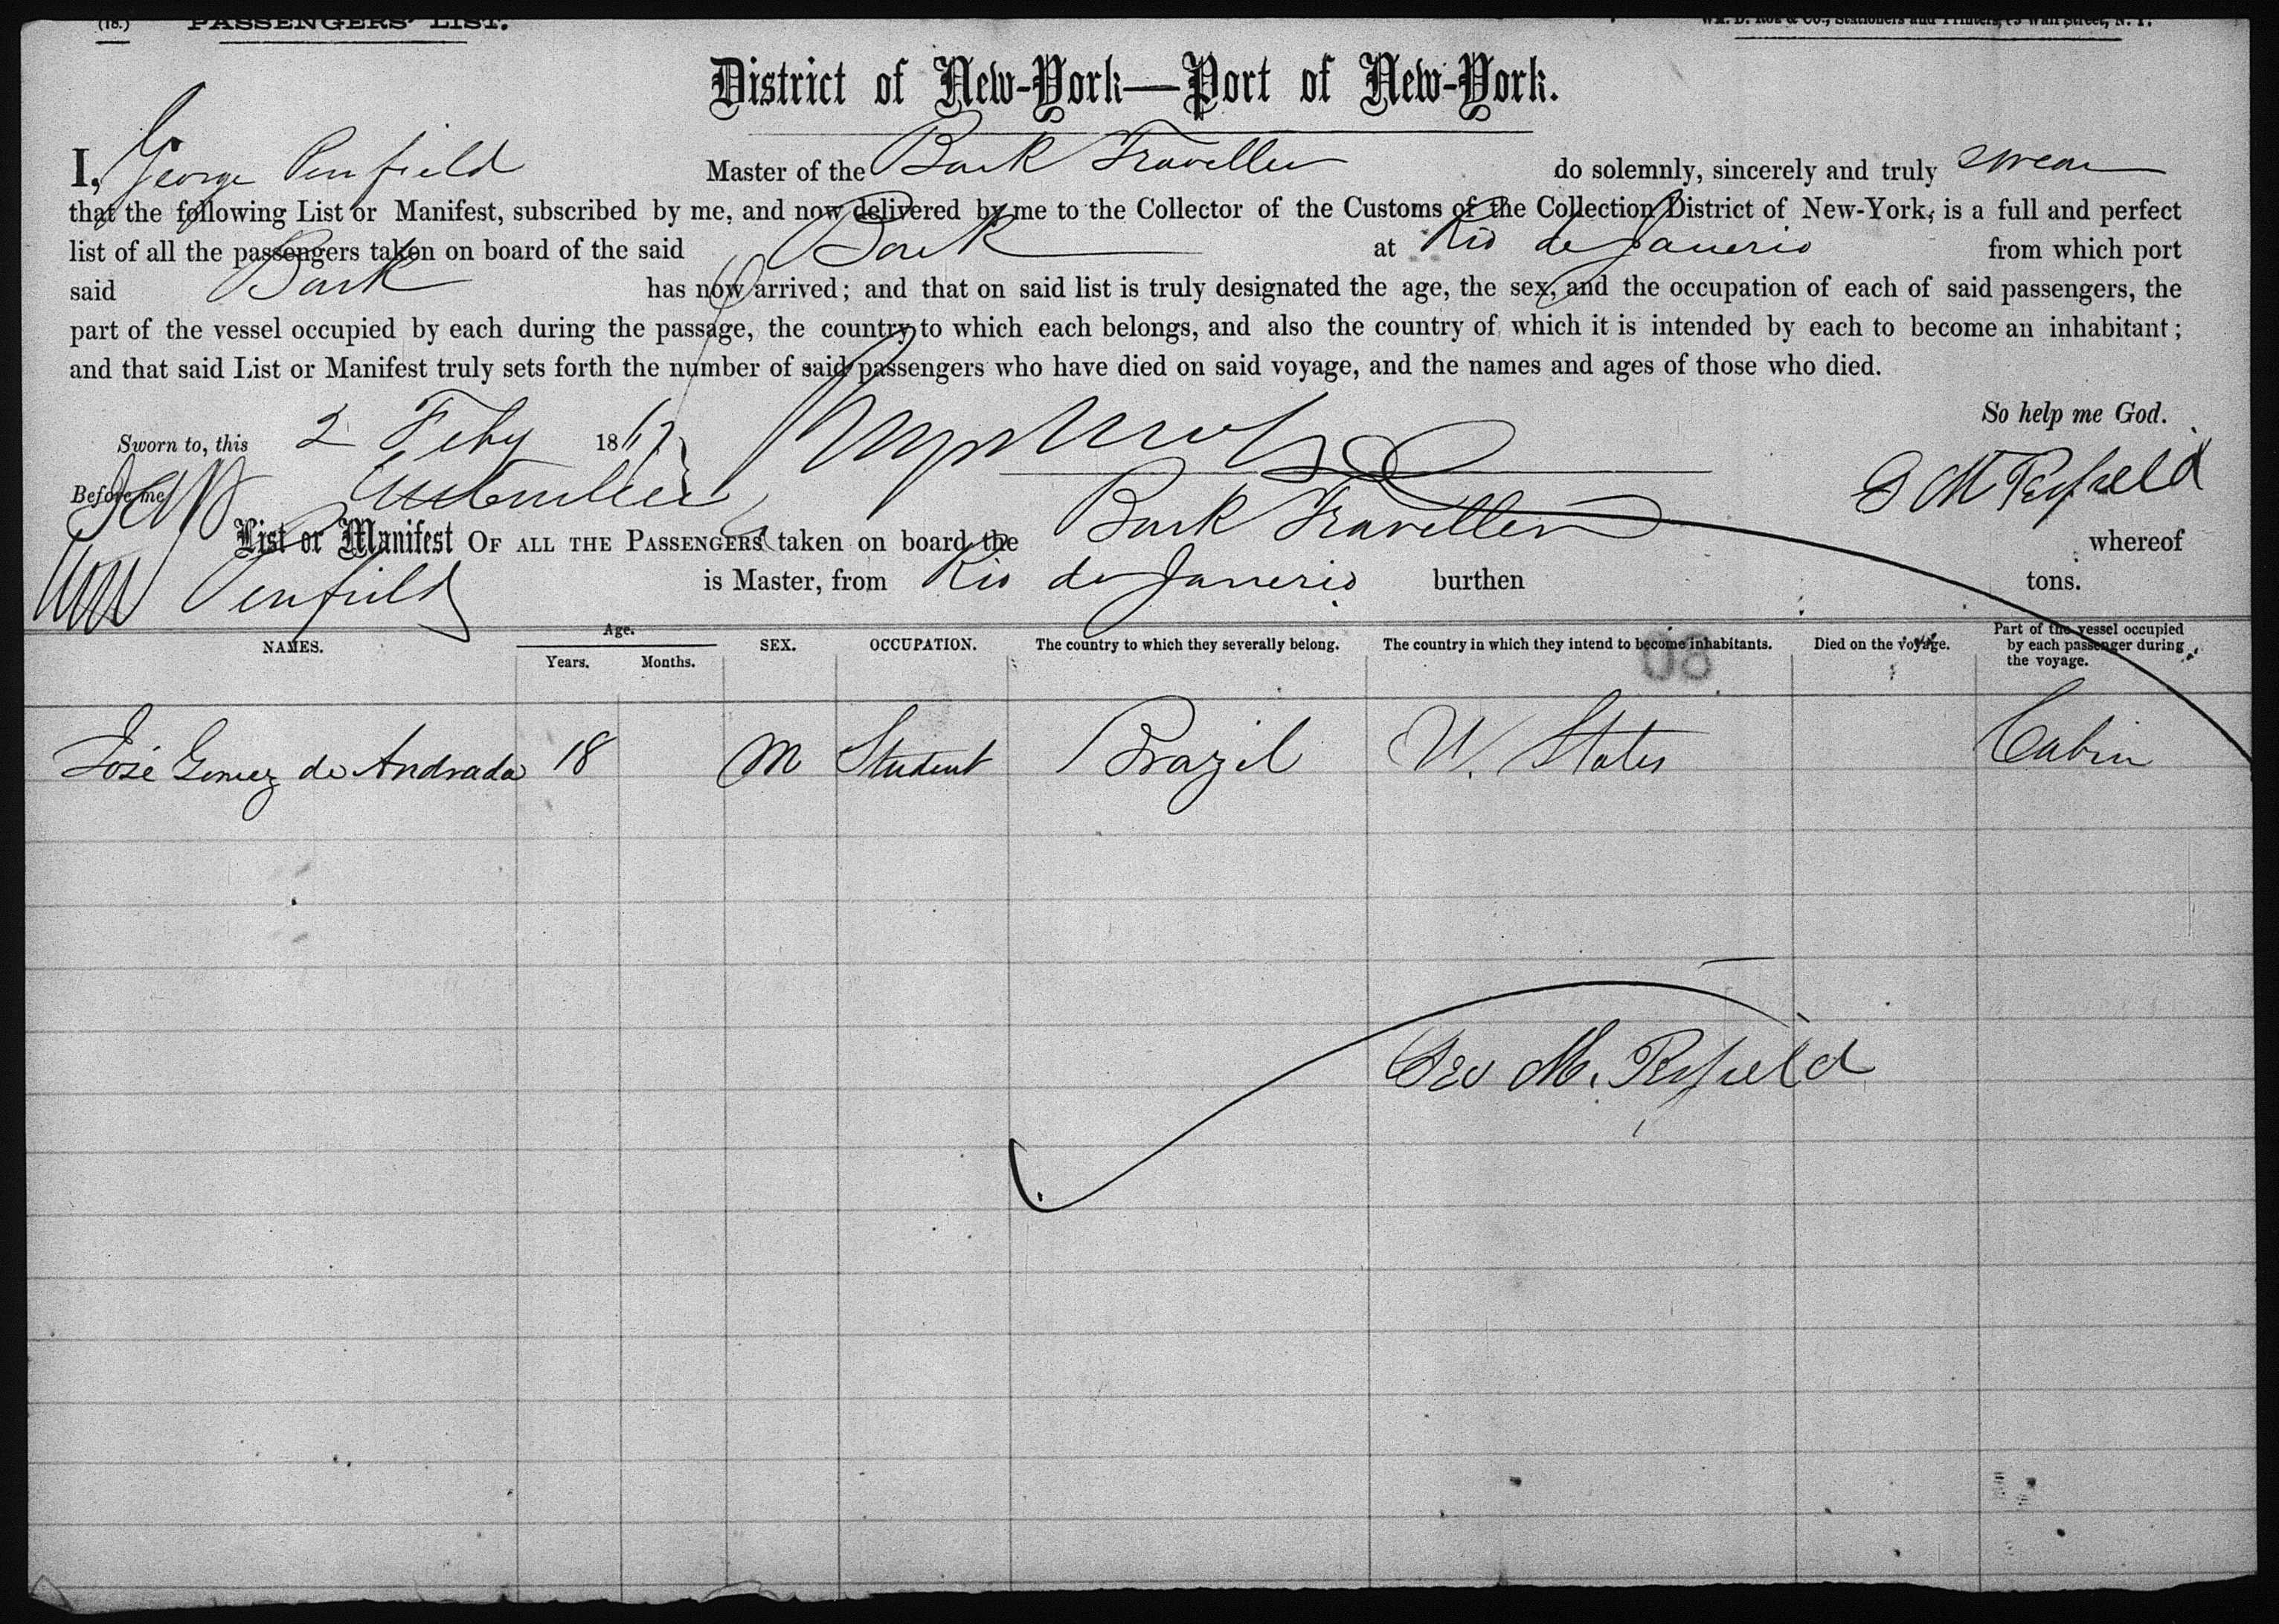 (18.) PASSENGERS' LIST. Wm. D. Roe & Co., Stationers and Printers, Wall Street, N. Y.
District of New-York—Port of New-York.
I, George Penfield Master of the Bark Traveller do solemnly, sincerely and truly swear
that the following List or Manifest, subscribed by me, and now delivered by me to the Collector of the Customs of the Collection District of New-York, is a full and perfect
list of all the passengers taken on board of the said Bark at Rio de Janerio from which port
said Bark has now arrived; and that on said list is truly designated the age, the sex, and the occupation of each of said passengers, the
part of the vessel occupied by each during the passage, the country to which each belongs, and also the country of which it is intended by each to become an inhabitant;
and that said List or Manifest truly sets forth the number of said passengers who have died on said voyage, and the names and ages of those who died.
So help me God.
Sworn to, this 2 Feby 186
Before me G M Penfield
List or Manifest OF ALL THE PASSENGERS taken on board the Bark Traveller whereof
Penfield is Master, from Rio de Janerio burthen tons.
NAMES. Age. Years. Months. SEX. OCCUPATION. The country to which they severally belong. The country in which they intend to become inhabitants. Died on the voyage. Part of the vessel occupied by each passenger during the voyage.
08
José Gomez de Andrada 18 M Student Brazil U. States Cabin
Geo M. Penfield